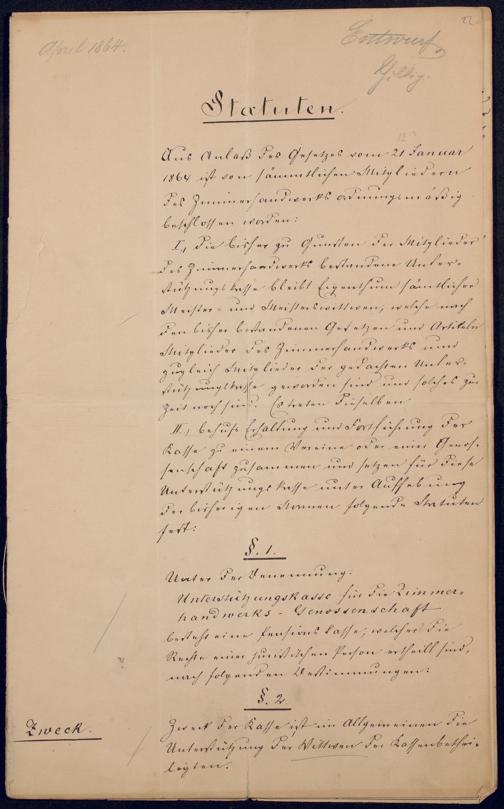 22
April 1864.
Entwurf.
Giltig.
Statuten.
Aus Anlaß des Gesetzes vom 21 Januar
1864 ist von sämmtlichen Mitgliedern
des Zimmerhandwerks ordnungsmäßig
beschlossen worden:
I, Die bisher zu Gunsten der Mitglieder
des Zimmerhandwerks bestandene Unter-
stützungskasse bleibt Eigenthum sämtlicher
Meister- und Meisterswittwen, welche nach
den bisher bestandenen Gesetzen und Artikeln
Mitglieder des Zimmerhandwerks und
zugleich Mitglieder der gedachten Unter-
stützungskasse geworden sind und solches zur
Zeit noch sind. Es treten dieselben
II, behufs Erhaltung und Fortführung der
Kasse zu einem Vereine oder einer Genos-
senschaft zusammen und setzen für diese
Unterstützungskasse unter Aufhebung
der bisherigen Normen folgende Statuten
fest:
§. 1.
Unter der Benennung:
Unterstützungskasse für die Zimmer-
handwerks-Genossenschaft
besteht eine Pensionskasse, welcher die
Rechte einer juristischen Person ertheilt sind,
nach folgenden Bestimmungen:
§. 2
Zweck.
Zweck der Kasse ist im Allgemeinen die
Unterstützung der Wittwen der Kassenbethei-
ligten.